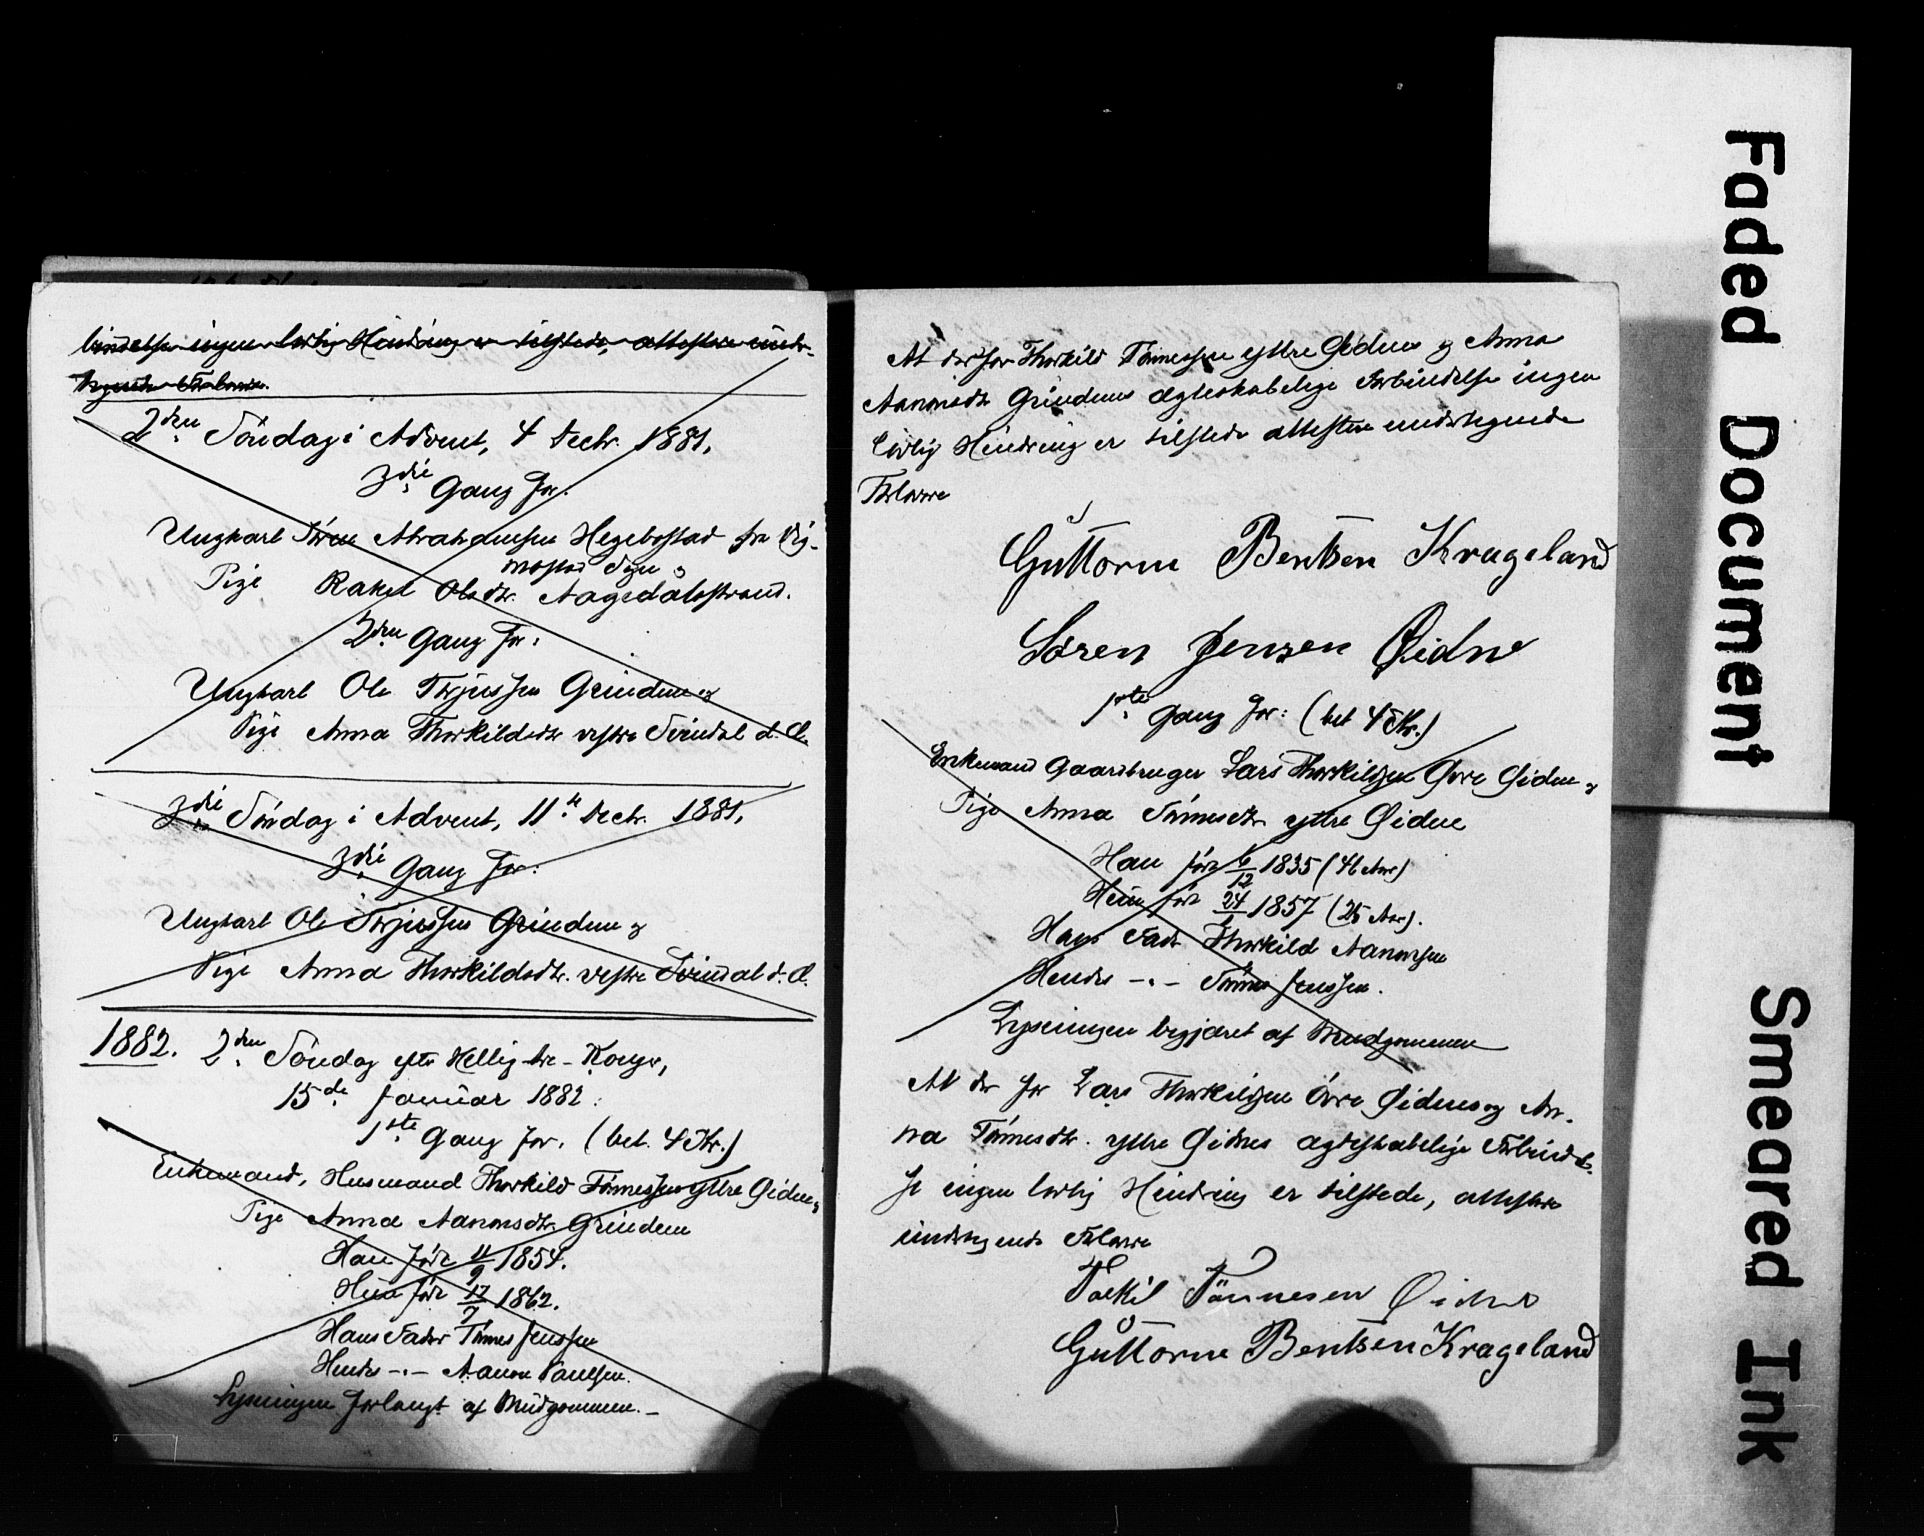 bindelse ingen lovlig Hindring er tilstede, attestere under-
tegnede Forlovere.
2den Söndag i Advent, 4 Decbr. 1881.
3die Gang for:
Ungkarl Sören Abrahamsen Hegebostad fra Vig-
mostad Sogn og
Pige Rakel Olsdtr. Aagedalsstrand.
2den Gang for:
Ungkarl Ole Terjussen Grindem og
Pige Anna Thorkildsdtr vestre Svindal d. Æ.
3die Söndag i Advent, 11te Decbr. 1881.
3die Gang for:
Ungkarl Ole Terjussen Grindem og
Pige Anna Thorkildsdtr. vestre Svindal d. Æ.
1882. 2den Söndag efter Hellig-tre-Konger,
15de Januar 1882:
1ste Gang for: (bet. 4 Kr.)
Enkemand, Husmand Thorkild Tönnessen yttre Øidne og
Pige Anna Aanonsdtr. Grindem
Han född 11/9 1854.
Hun föd 17/7 1862.
Hans Fader Tönnes Jenssen
Hendes -"- Aanon Paulsen.
Lysningen forlangt af Brudgommen.-
At der for Thorkild Tönnessen yttre Øidnes og Anna
Aanonsdtr Grindems ægteskabelige Forbindelse ingen
lovlig Hindring er tilstede attestere undertegnede
Forlovere
Guttorm Bentsen Krageland
Sören Jensen Øidne
1ste Gang for: (bet 4 Kr.)
Enkemand Gaardbruger Lars Thorkildsen Övre Øidne og
Pige Anna Tönnesdtr ytre Øidne
Han född 6/12 1835 (46 Aar)
Hun föd 24/1 1857 (25 Aar).
Hans Fader Thorkild Aanonsen
Hendes -"- Tönnes Jenssen.
Lysningen begjæret af Brudgommen
At der for Lars Thorkildsen övre Øidnes og An-
na Tönnesdtr. ytre Øidnes ægteskabelige Forbindel-
se ingen lovlig Hindring er tilstede, attestere
undertegnede Forlovere
Torkil Tönnesen Øidne
Guttorm Bentsen Krageland
Faded Document
Smeared Ink